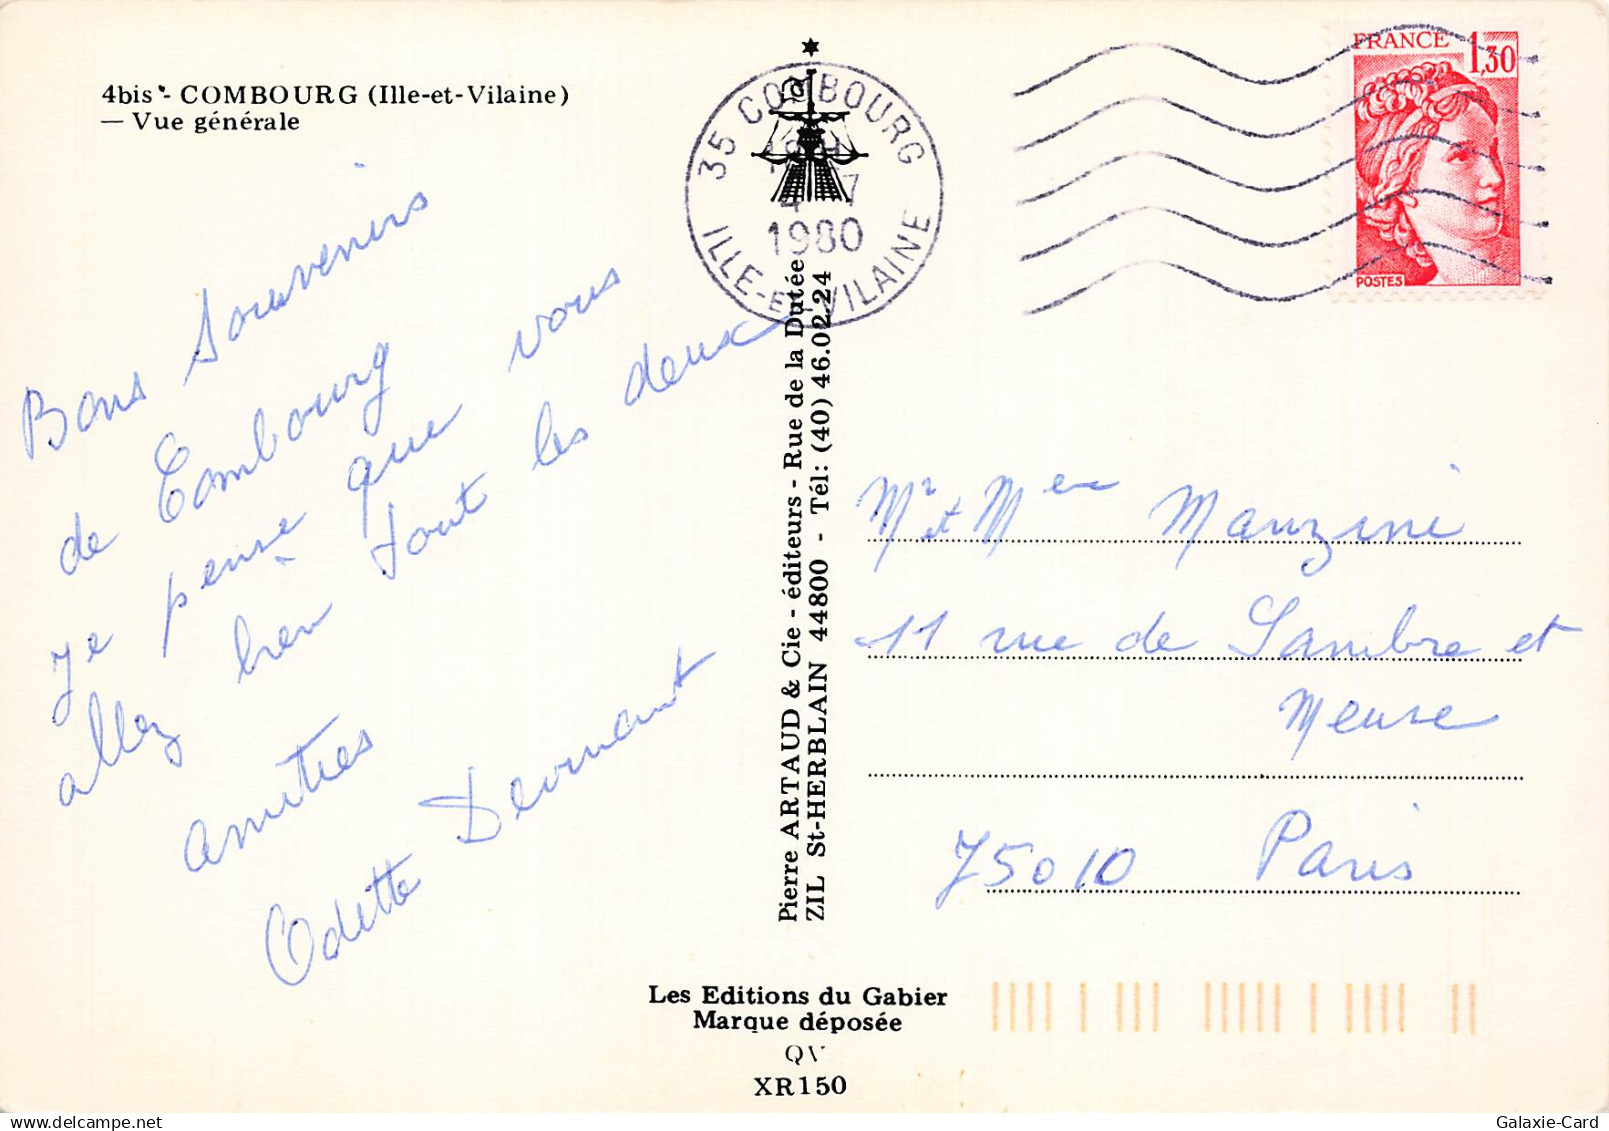 4bis - COMBOURG (Ille-et-Vilaine)
— Vue générale
Bons Souvenirs
de Combourg
je pense que vous
allez bien tout les deux
amitiés
Odette
35 COMBOURG
4 7
1980
ILLE-ET-VILAINE
FRANCE 1,30
POSTES
Pierre ARTAUD & Cie - éditeurs - Rue de la Dutée
ZIL St-HERBLAIN 44800 - Tél: (40) 46.02.24
Mr et Mme Manzini
11 rue de Sambre et
Meuse
75010 Paris
Les Editions du Gabier
Marque déposée
QV
XR150
Galaxie-Card